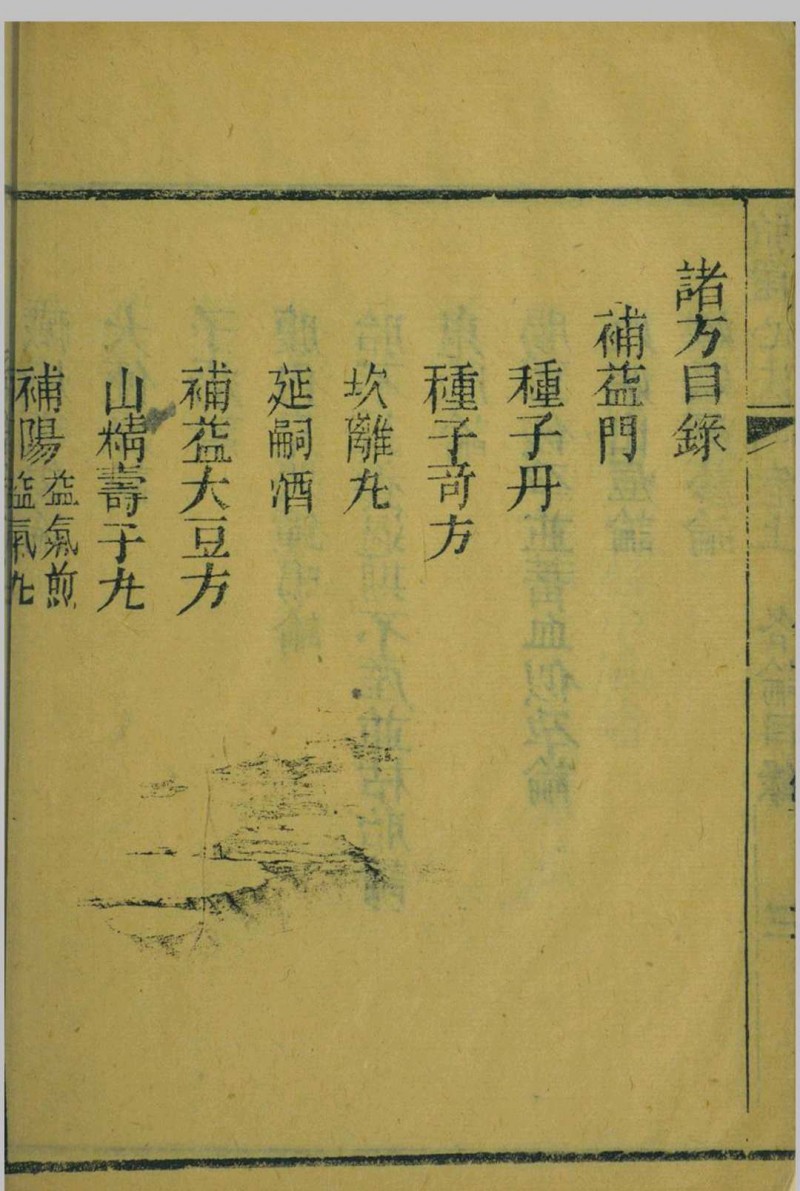 諸方目錄
補益門
種子丹
種子奇方
坎離丸
延嗣酒
補益大豆方
山精壽子丸
補陽益氣煎
益氣丸